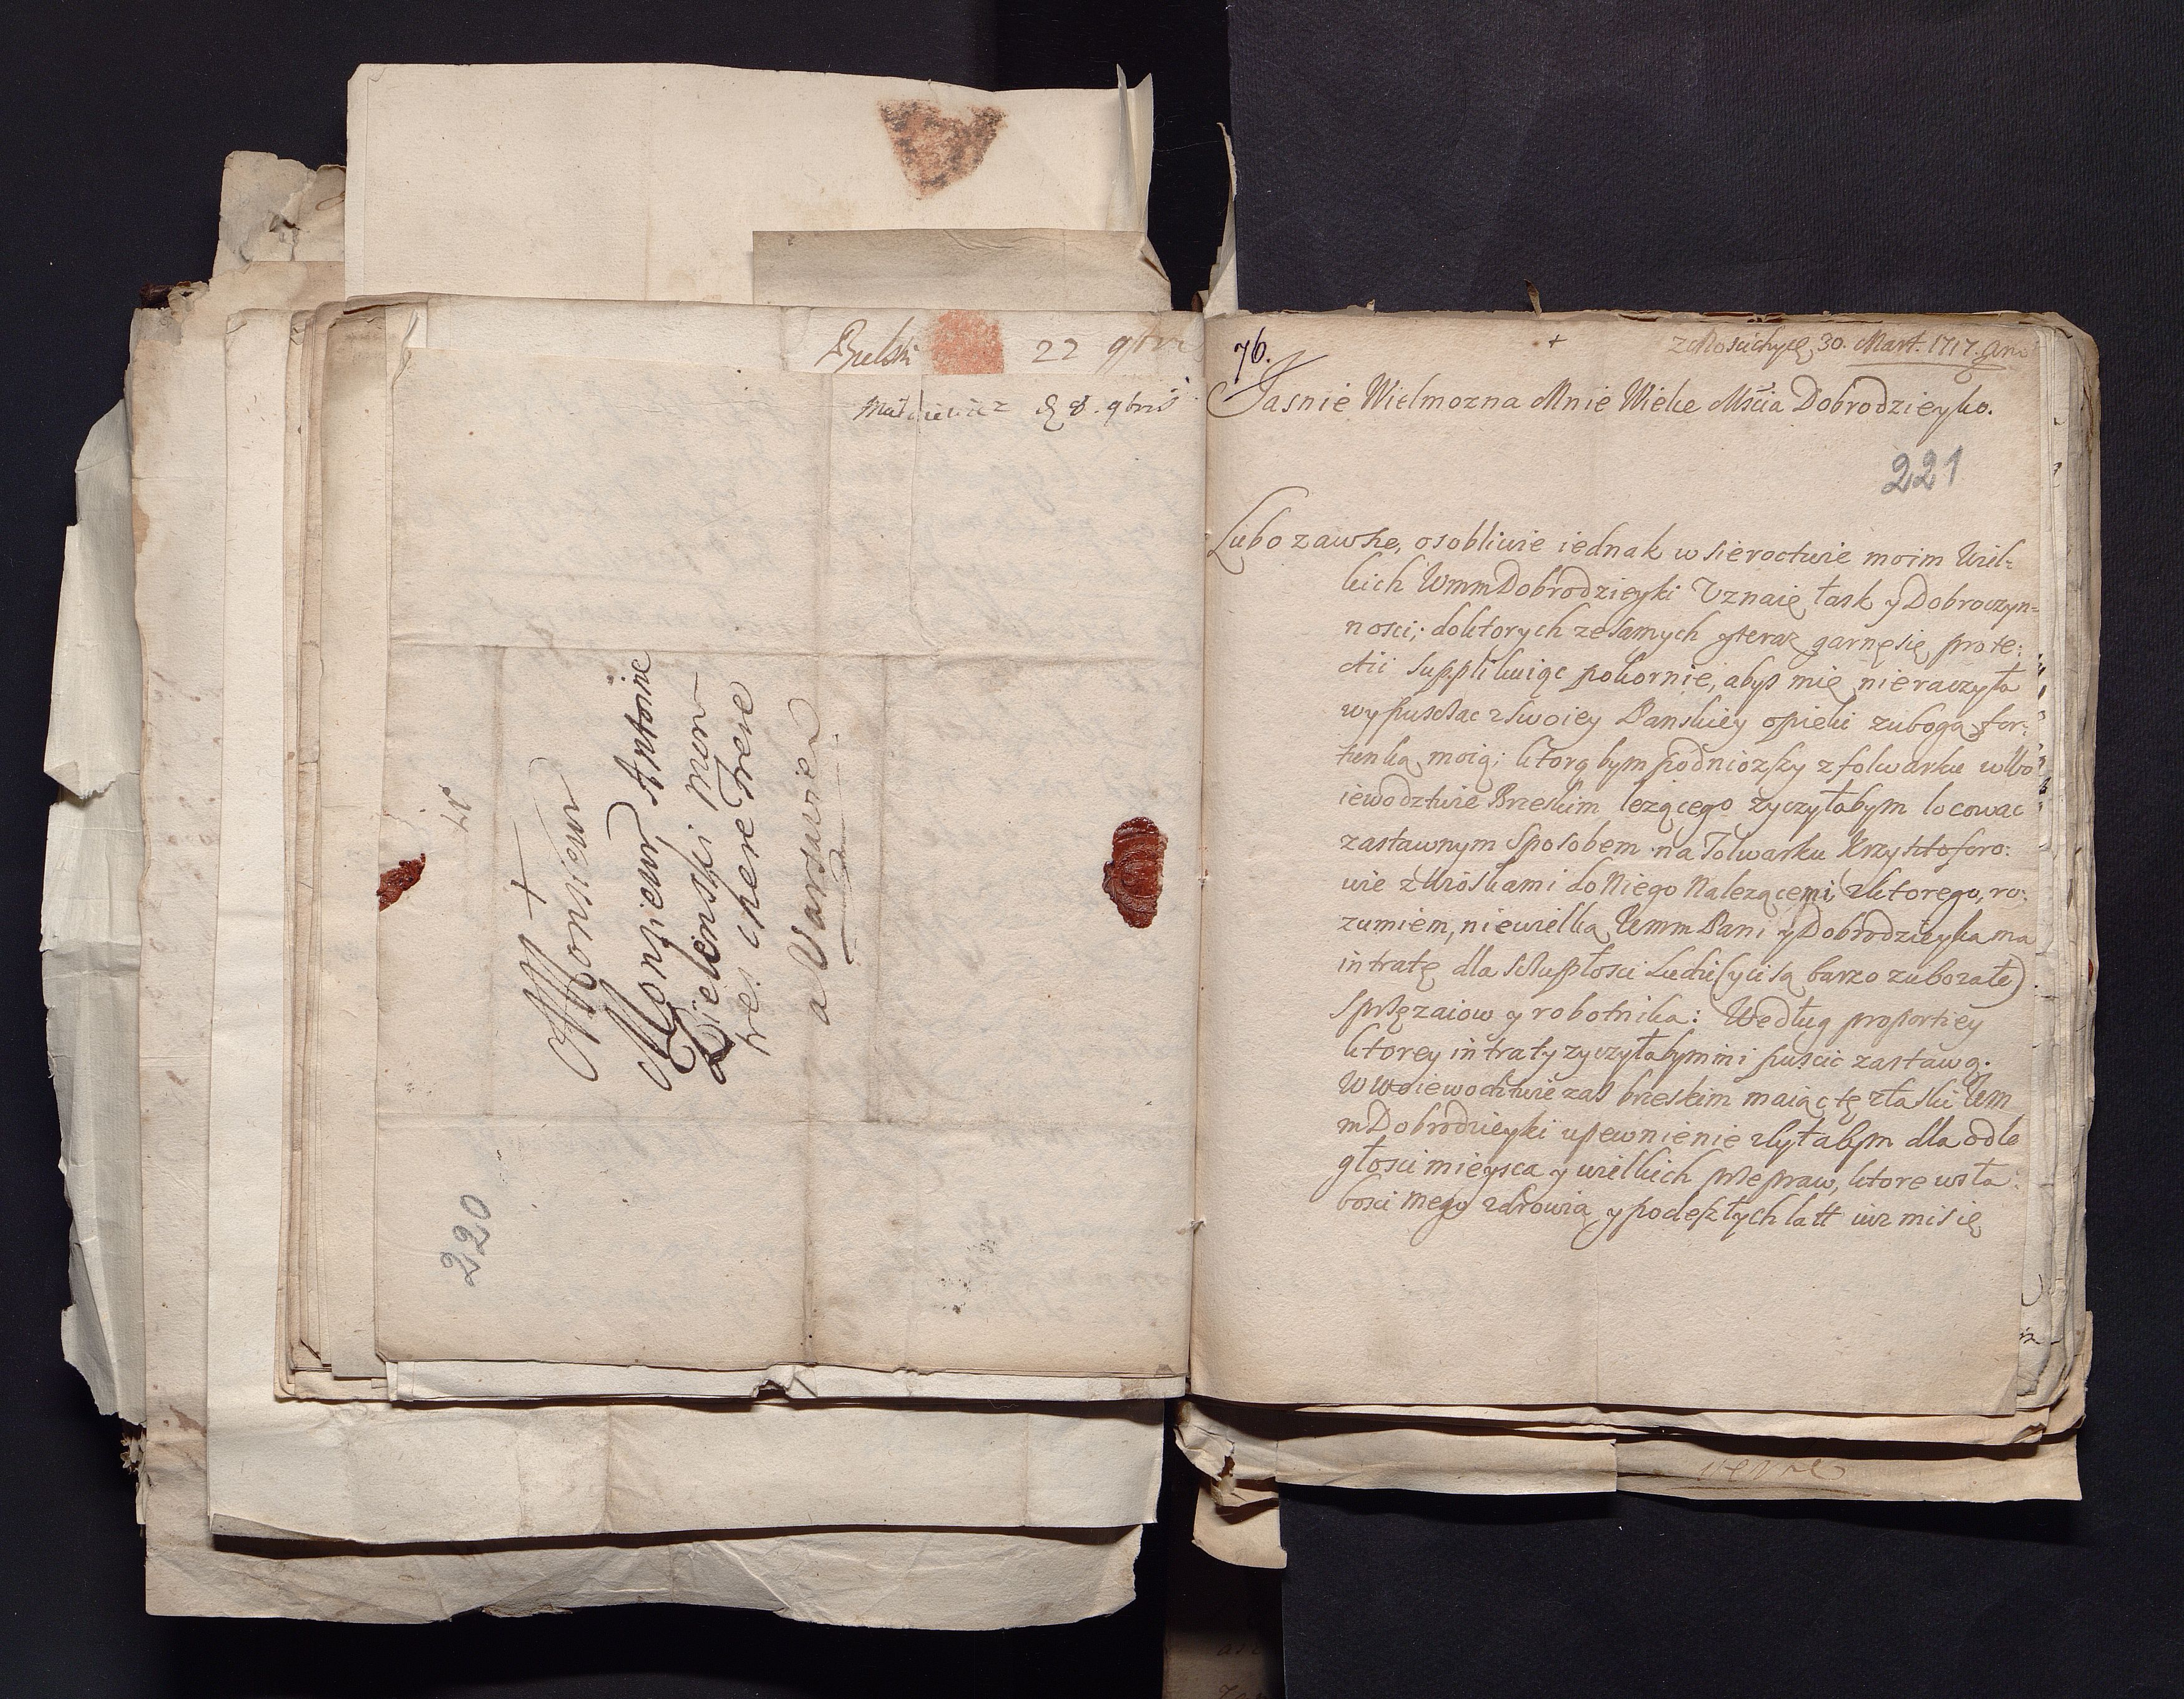 Bielski 22 9bris
Matuiewicz 8. 9bris
+
Monsieur
Monsieur Antoine
Zielenski mon
tres chere Frere
a Varsavie
220
76.
+
30. Mart. 1717. Ano
Jasnie Wielmozna Mnie Wielce Mścia Dobrodzieyko.
221
Lubo zawsze, osobliwie iednak w sieroctwie moim Wiel-
kich WmmDobrodzieyki Uznaię łask y Dobroczyn-
nosci; doktorych zesamych yteraz garnęsię prote-
ctii supplikuiąc pokornie, abys mię nieraczyła
wypuszczac zswoiey Panskiey opieki zubogą for-
tunką moią; ktorą bym podniozszy z folwarku wWo
iewodztwie Brzeskim lezącego zyczyłabym locowac
zastawnym Sposobem na Folwarku Krzysztoforo-
wie zWioskami do Niego Nalezącemi, zktorego, ro-
zumiem, niewielką Wmm Pani y Dobrodzieyka ma
intratę dla szczupłosci Ludzi (yci są barzo zubozałe)
sprzęzaiow y robotnika: Według proportiey
ktorey intraty zyczyłabym mi puscic zastawą.
W Woiewodztwie zas brzeskim maiąc tę złaski Wm
mDobrodzieyki upewnienie zbyłabym dla odle
głosci mieysca y wielkich przepraw, ktore wsła-
bosci mego zdrowia y podeszłych latt iuz mi się